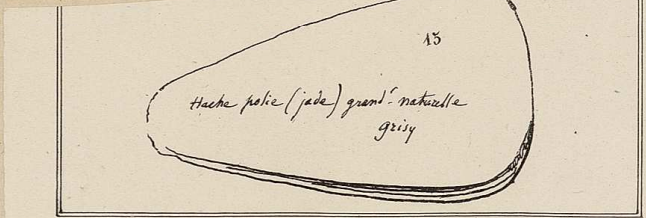 15
Hache polie (jade) grandʳ naturelle
Grisy